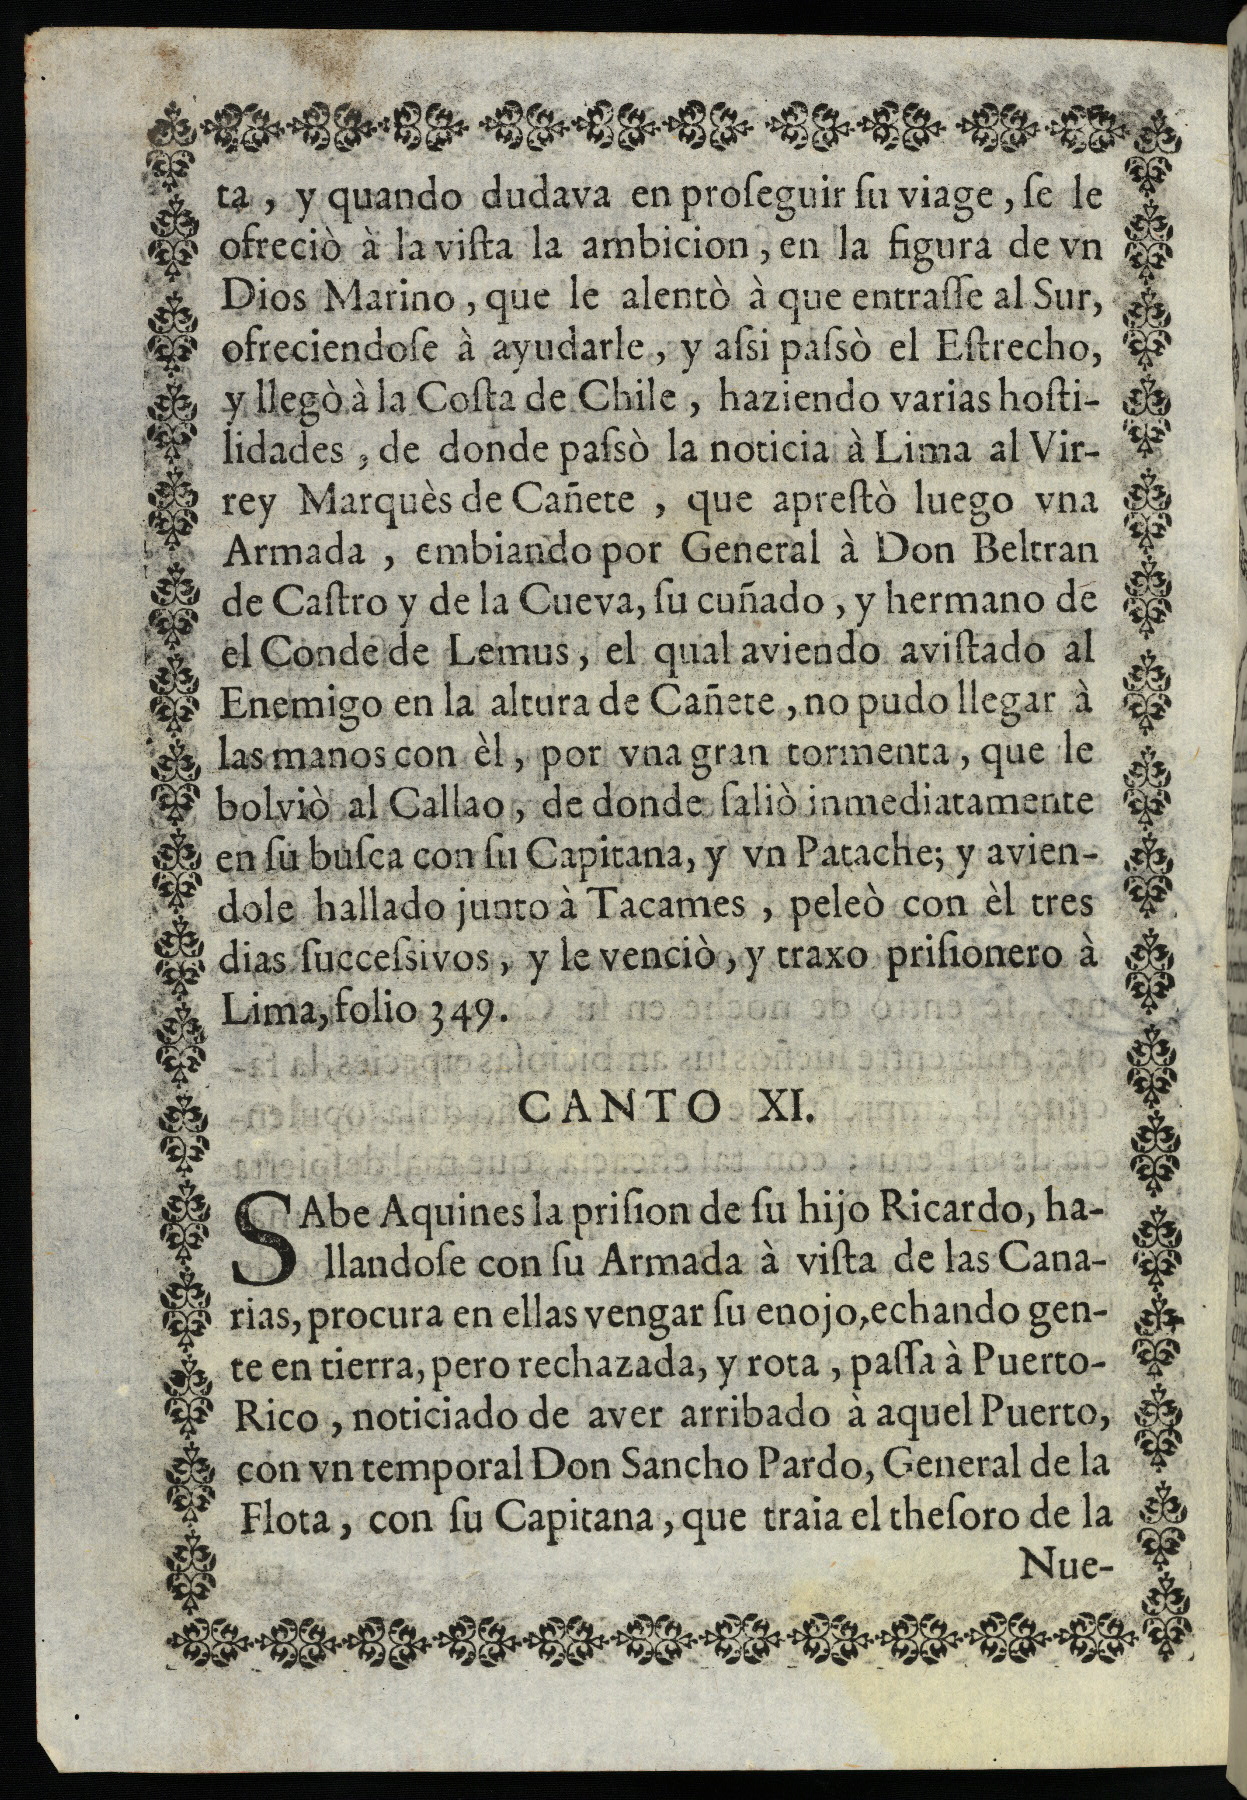 ta, y quando dudava en proſeguir ſu viage, ſe le
ofreciò à la viſta la ambicion, en la figura de vn
Dios Marino, que le alentò à que entraſſe al Sur,
ofreciendoſe à ayudarle, y aſsi paſsò el Eſtrecho,
y llegò à la Coſta de Chile, haziendo varias hoſti-
lidades, de donde paſsò la noticia à Lima al Vir-
rey Marquès de Cañete, que apreſtò luego vna
Armada, embiando por General à Don Beltran
de Caſtro y de la Cueva, ſu cuñado, y hermano de
el Conde de Lemus, el qual aviendo aviſtado al
Enemigo en la altura de Cañete, no pudo llegar à
las manos con èl, por vna gran tormenta, que le
bolviò al Callao, de donde ſaliò inmediatamente
en ſu buſca con ſu Capitana, y vn Patache; y avien-
dole hallado junto à Tacames, peleò con èl tres
dias ſucceſsivos, y le venciò, y traxo priſionero à
Lima, folio 349.
CANTO XI.
SAbe Aquines la priſion de ſu hijo Ricardo, ha-
llandoſe con ſu Armada à viſta de las Cana-
rias, procura en ellas vengar ſu enojo, echando gen-
te en tierra, pero rechazada, y rota, paſſa à Puerto-
Rico, noticiado de aver arribado à aquel Puerto,
con vn temporal Don Sancho Pardo, General de la
Flota, con ſu Capitana, que traia el theſoro de la
Nue-